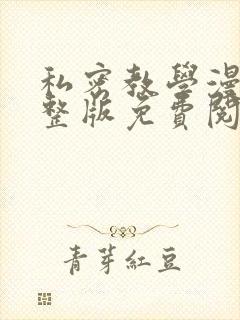 私密教學漫
整版免費閱
青芽紅豆